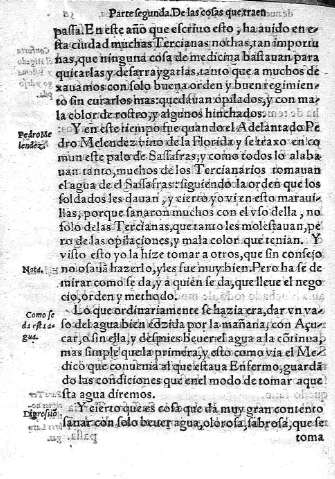 Parte segunda. De las cosas que traen
passa. En este año que escriuo esto, ha auido en es
sta ciudad muchas Tercianas nothas, tan importu
nas, que ninguna cosa de medicina bastauan para
quitarlas y desarraygarlas, tanto que a muchos de
xauamos con solo buena orden y buen regimien
to sin curarlos mas: quedauan opilados, y con ma
la color de rostro, y algunos hinchados.
Pedro Me
lendez.
Y en este tiempo fue quando el Adelantado Pe
dro Melendez vino de la Florida y se traxo en co
mun este palo de Sassafras, y como todos lo alaba
uan tanto, muchos de los Tercianarios tomauan
el agua de el Sassafras: siguiendo la orden que los
soldados les dauan, y cierto yo vi en esto maraui-
llas, porque sanaron muchos con el vso della, no
solo de las Tercianas, que tanto les molestauan, pe
ro de las opilaciones, y mala color que tenian. Y
visto esto yo la hize tomar a otros, que sin consejo
Nota.
no osauã hazerlo, y les fue muy bien. Pero ha se de
mirar como se da, y a quien se da, que lleue el nego
cio, orden y methodo.
Como se
da esta a
gua.
Lo que ordinariamente se hazia era, dar vn va
so del agua bien cozida por la mañana, con Açu
car, o sin ella, y despues beuer el agua a la cõtinua,
mas simple que la primera, y esto como via el Me
dico que conuenia al que estaua Enfermo, guardã
do las condiciones que en el modo de tomar aque
sta agua diremos.
Digresiõ
Y cierto que es cosa que da muy gran contento
sanar con solo beuer agua, olorosa, sabrosa, que se
toma